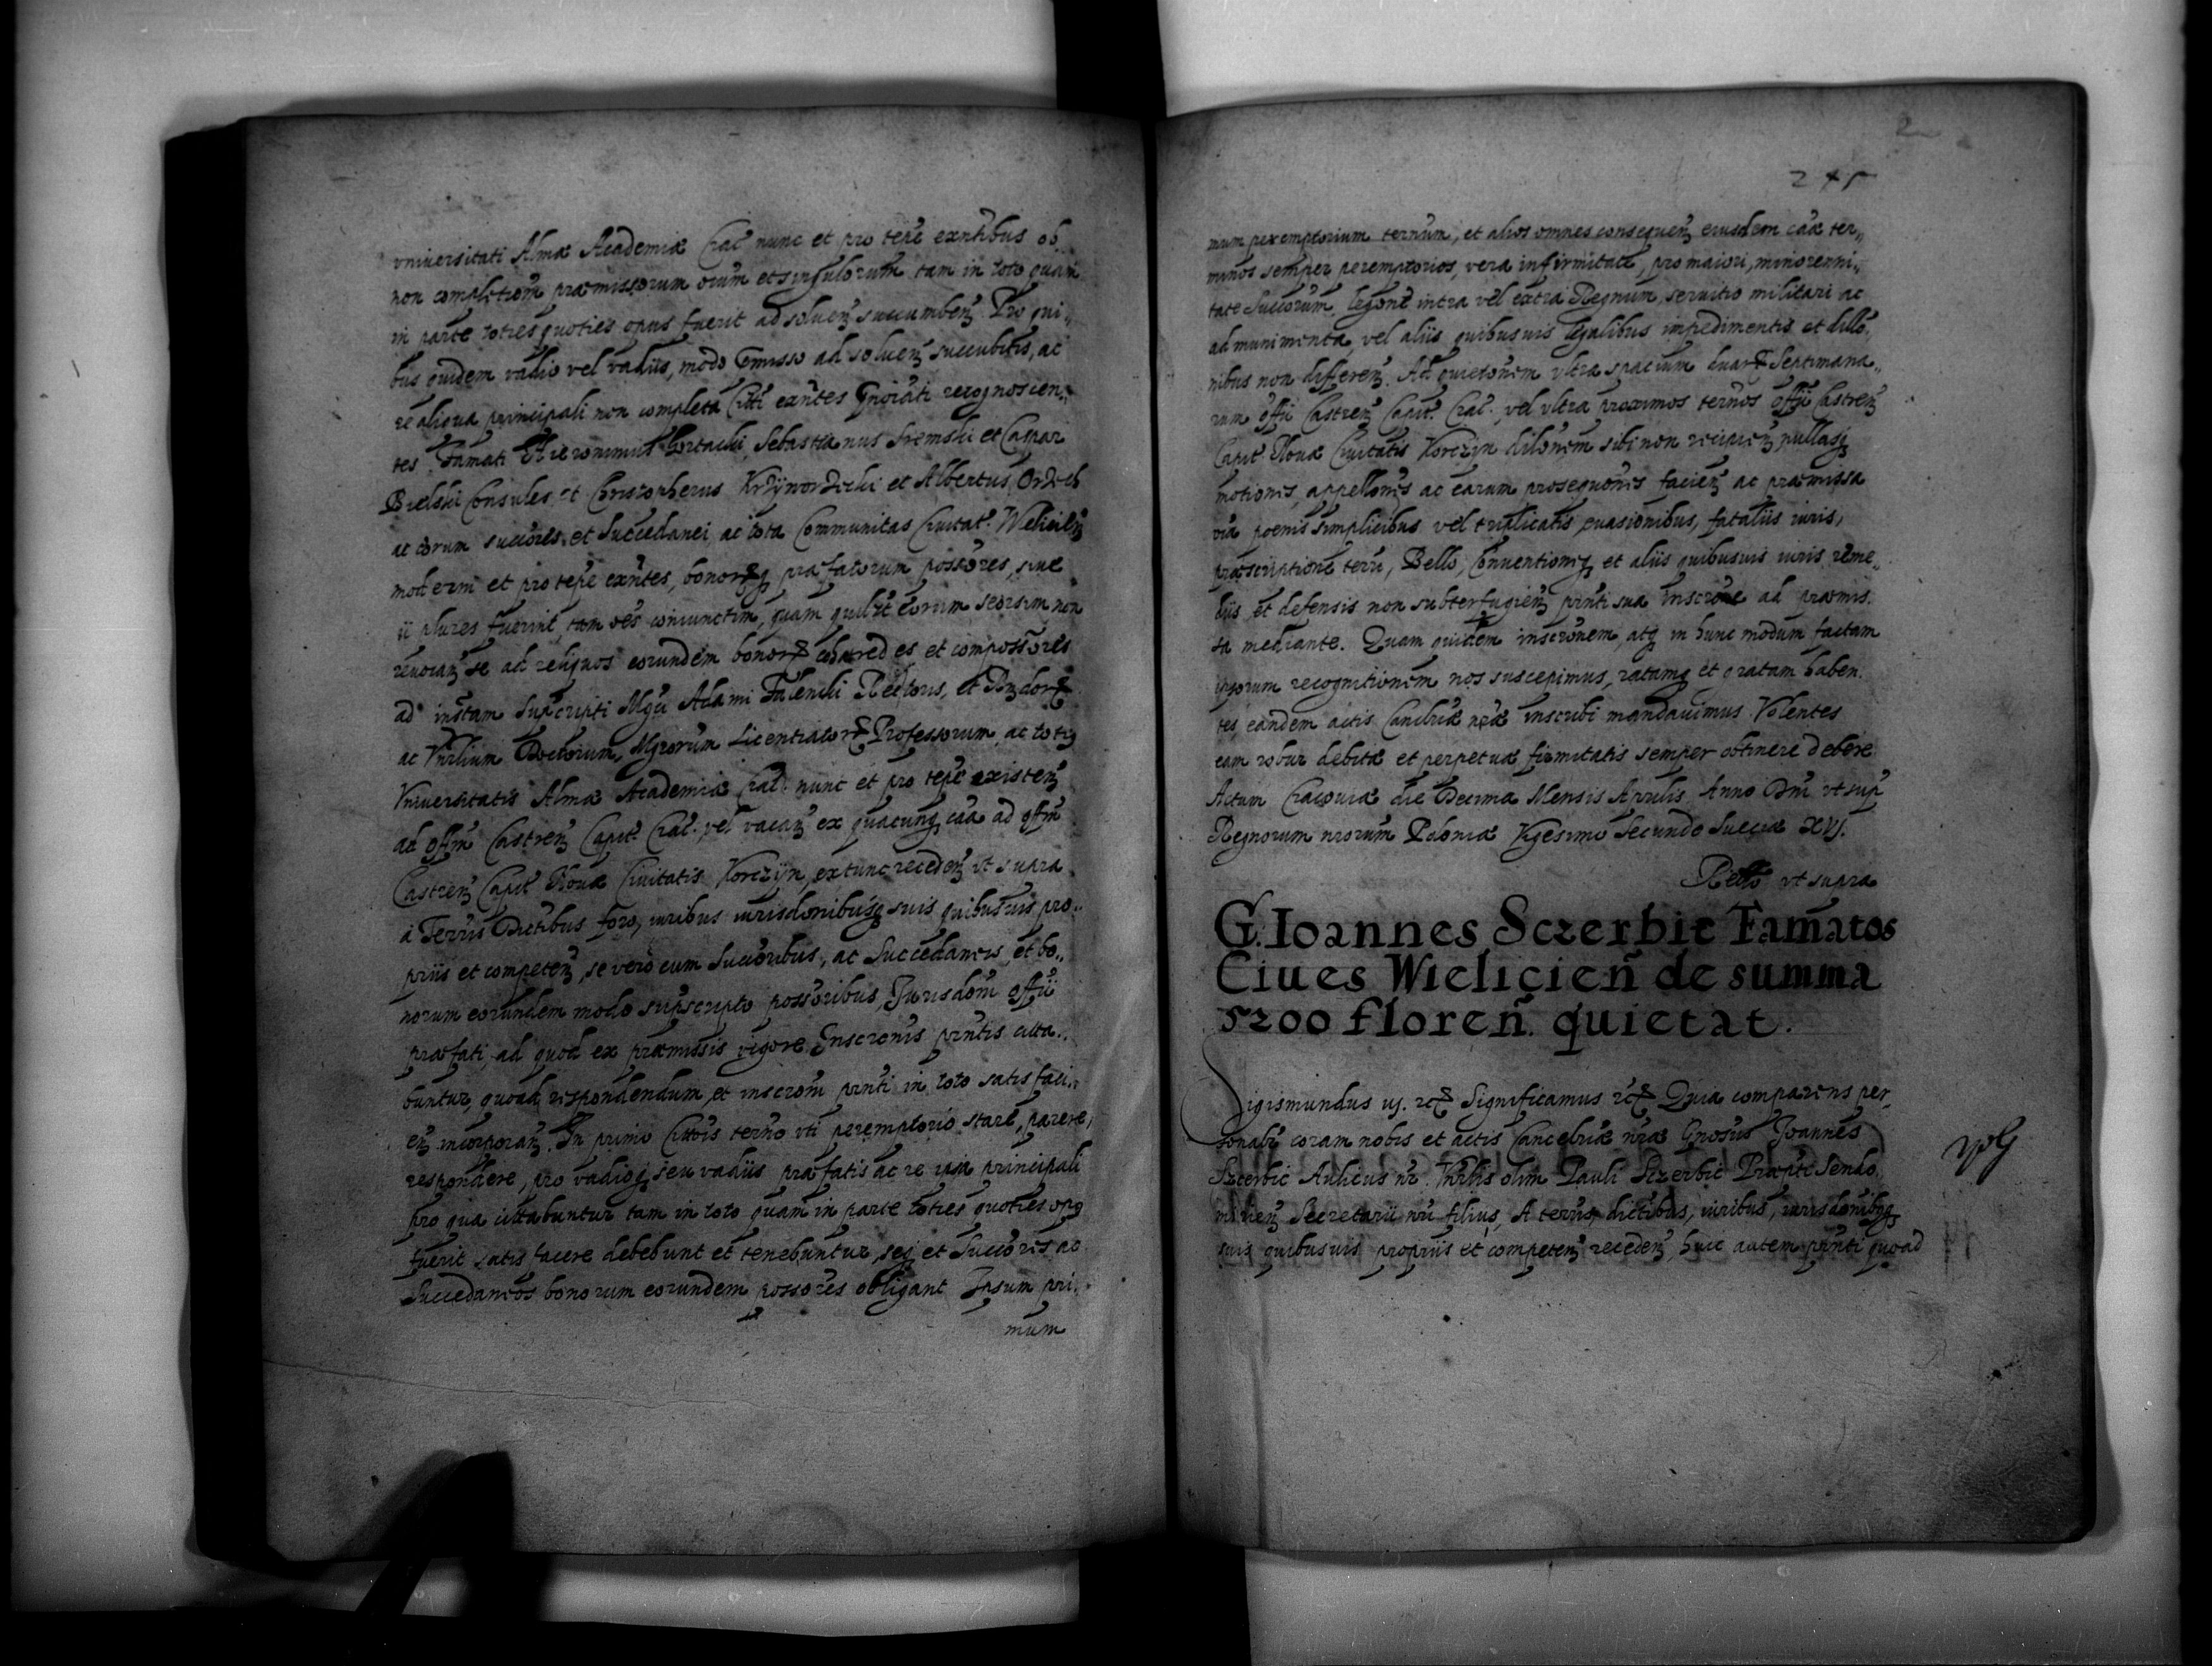 vniuersitati Almæ Academiæ Crac̃ nunc et pro tep̃e exñtibus ob
non completiom̃ præmissorum oiũm et singulorum tam in toto quam
in parte toties quoties opus fuerit ad soluen̄ succumben̄. Pro qui„
bus quidem vadio vel vadiis, modo p̃misso ad soluen̄ succubitis, ac
re aliqua principali non completa Citti exñtes Gnoiati recognoscen„
tes. Famati Hieronimus Sebastianus Sremski et Caspar
Bielski Consules et Christopherus et Albertus Ordech
ac eorum succores et Succedanei, ac tota Communitas Ciuitat. Weliciẽn
moderni et pro tep̃e exñtes, bonorq̃ præfatorum possores, siue
ii plures fuerint, tam oẽs coniunctim, quam quilibet eorum seorsim non
reuocan̄ se ad reliquos eorundem bonor̃ cohæredes et compossores
ad instam̃ supscripti Mgci Adami Falencki Rectoris, et
ac Vnrlium Doctorum, Mgrorum Licentiator̃ Professorum, ac totiq
Vniuersitatis Almæ Academiæ Crac̃ nunc et pro tep̃e existen̄
ad offm̃ Castren̄ Capit. Crac. vel vacan̄ ex quacunq caã ad offm̃
Castren̄ Capit. Nouæ Ciuitatis Korczyn, extunc receden̄ vt supra
à Terris Dictibus foro, iuribus iurisdonibusq suis quibusuis pro„
priis et competen̄, se vero cum Succoribus, ac Succedaneis et bo„
norum eorundem modo supscripto possoribus, Jurisdom̃ offii
præfati, ad quod ex præmissis vigore Inscronis pñtis citta„
buntur, quoad respondendum, et inscrom̃ pñti in toto satisfaci„
en̄ incorporan̄. In primo Cittois terno vti peremptorio stare, parere,
respondere, pro vadioq seu vadiis præfatis ac re ipsa principali
pro qua cittabuntur tam in toto quam in parte toties quoties opq
fuerit satis facere debebunt et tenebuntur, seq et Succores ac
Succedaneos bonorum eorundem possores obligant Ipsum pri„
mum
245
mum peremptorium ternum, et alios omnes consequen̄ eiusdem caæ ter„
minos semper peremptorios, vera infirmitate, pro maiori, minorenni„
tate Succorum, legone intra vel extra Regnum, seruitio militari ac
ad munimenta, vel aliis quibusuis legalibus impedimentis et dillo„
nibus non differen̄. Ad quietonem vltra spacium duar̃ Septimana„
rum offii Castren̄ Capit. Crac. vel vltra proximos ternos offii Castren̄
Capit. Nouæ Ciuitatis Korczyn dilonem sibi non recipien̄ nullasq
motiones, appellones ac earum prosequones facien̄ ac præmissa
oiã poenis simplicibus vel triplicatis, euasionibus, fataliis iuris,
præscriptione terri, Bello, Conuentioniq et aliis quibusuis iuris reme„
diis et defensis non subterfugien̄ pñti sua inscrone ad præmis„
sa mediante. Quam quidem inscronem, atq in hunc modum factam
ipsorum recognitionem nos suscepimus, ratamq et gratam haben„
tes, eandem actis Cancelriæ nræ inscribi mandauimus. Volentes
eam robur debitæ et perpetuæ firmitatis semper obtinere debere
Actum Cracouiæ die Decima Mensis Aprilis Anno Dni vt sup̃
Regnorum nrorum Poloniæ Vigesimo Secundo Sueciæ XVI.
Rello vt supra
G. Ioannes Sczerbic Famatos
Ciues Wielicień de summa
5200 floreñ. quietat.
Sigismundus iij. rc̃ Significamus rc̃ Quia comparens per„
sonalr̃ coram nobis et actis Cancelriæ nræ Gnosus Joannes
Szcerbic Aulicus nr̃ Vnrlis olim Pauli Sczerbic Præpti Sendo„
mirien̄ Secretarii nri filius, A terris, dictibus, iuribus, iurisdonibq
suis quibusuis propriis et competen̄ receden̄, huic autem pñti quoad